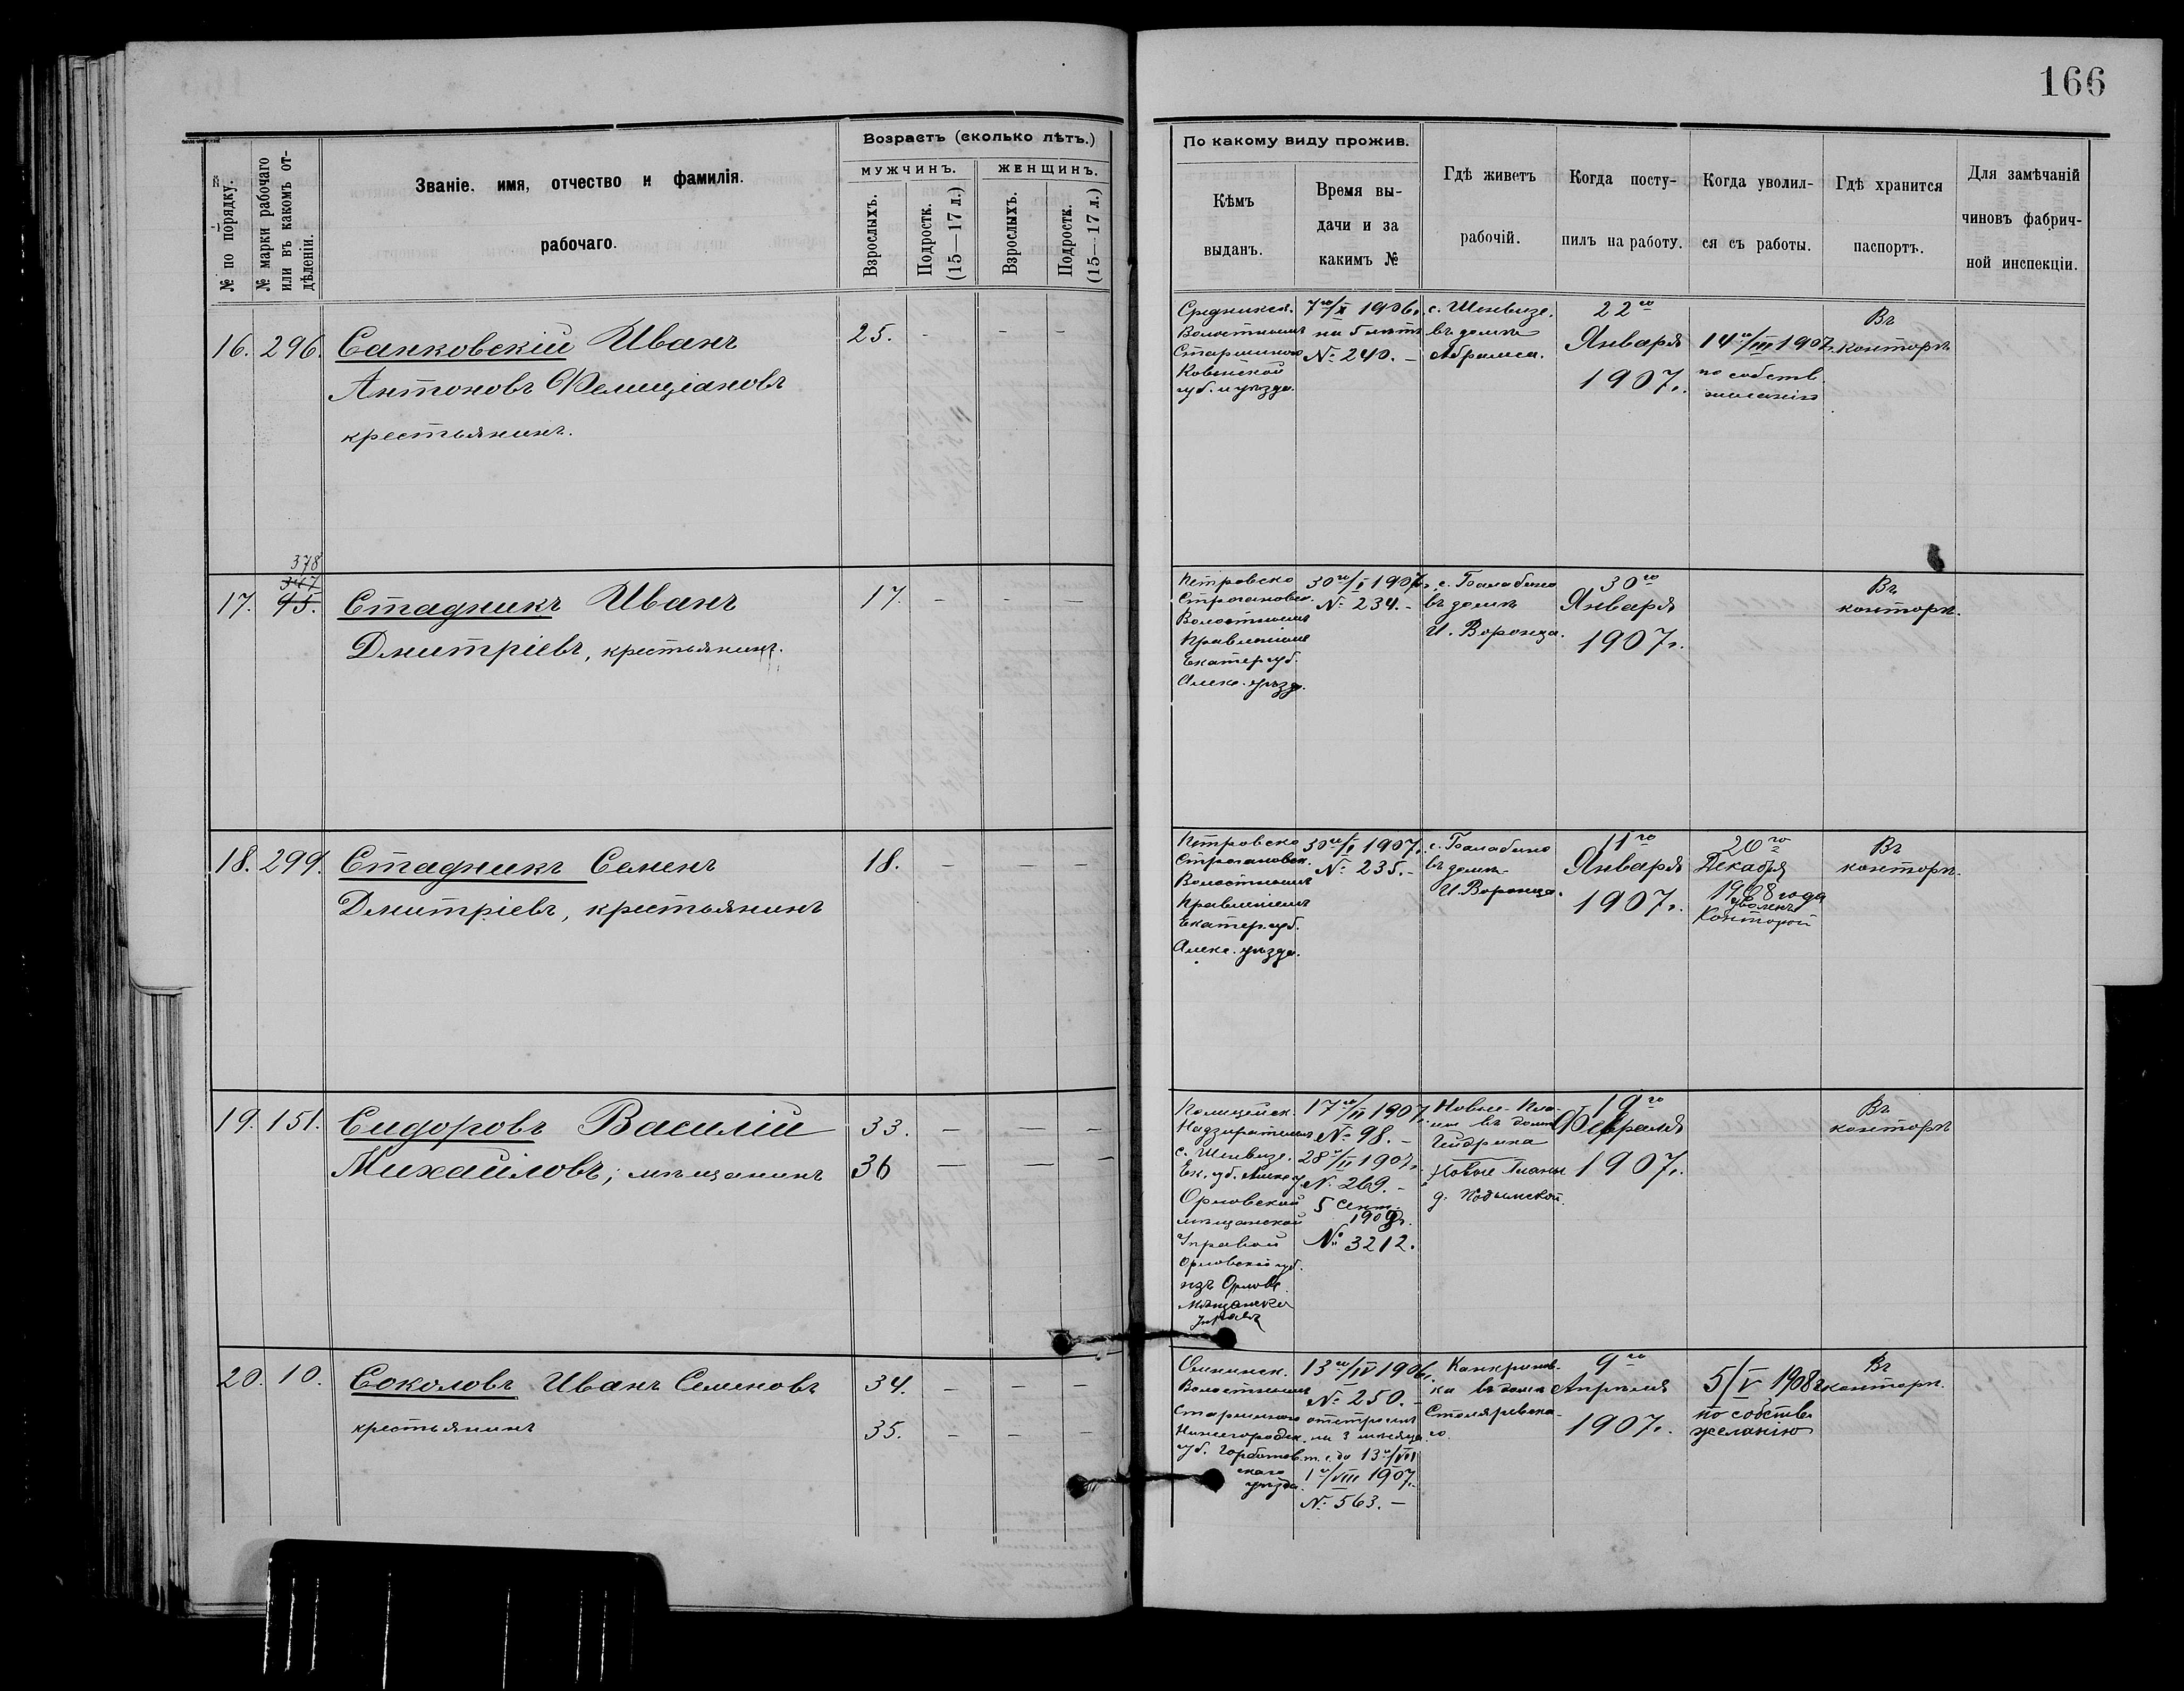 166
№ по порядку.
№ марки рабочаго или въ какомъ отдѣленіи.
Званіе, имя, отчество и фамилія
рабочаго.
Возрастъ (сколько лѣтъ.)
мужчинъ.
женщинъ.
Взрослыхъ.
Подростк. (15—17 л.)
Взрослыхъ.
Подростк. (15—17 л.)
По какому виду прожив.
Кѣмъ
выданъ.
Время вы-
дачи и за
какимъ №
Гдѣ живетъ
рабочій.
Когда посту-
пилъ на работу.
Когда уволил-
ся съ работы.
Гдѣ хранится
паспортъ.
Для замѣчаній
чиновъ фабрич-
ной инспекціи.
16. 296. Санковскій Иванъ
Антоновъ Фелиціановъ
крестьянинъ.
25. - - -
Средникск.
Волостнымъ
Старшиною
Ковенской
губ. и уѣзда.
7го/X 1906г.
на 5 лѣтъ
№ 240. -
с. Шенвизе.
въ домѣ
Абрамса.
22го
Января
1907г.
14го/III 1907г.
по собств.
желанію
Въ
конторѣ
378
347
17. 95. Стадникъ Иванъ
Дмитріевъ, крестьянинъ.
17. - - -
Петровско
Строгановск.
Волостнымъ
Правленіемъ
Екатер. губ.
Алекс. уѣзда.
30го/I 1907г.
№ 234. -
с. Балабино
въ домѣ
И. Воронца.
30го
Января
1907г.
Въ
конторѣ.
18. 299. Стадникъ Семенъ
Дмитріевъ, крестьянинъ
18. - - -
Петровско
Строгановск.
Волостнымъ
Правленіемъ
Екатер. губ.
Алекс. уѣзда.
30го/I 1907г.
№ 235. -
с. Балабино
въ домѣ
И. Воронца.
11го
Января
1907г.
20го
Декабря
1908 года
уволенъ
Конторой
Въ
конторѣ.
19. 151. Сидоровъ Василій
Михайловъ; мѣщанинъ
33. - - -
36 - - -
Полицейск.
Надзирателемъ
с. Шенвизе.
Ек. губ. Алекс. у.
Орловской
мѣщанской
Управой
Орловской губ.
изъ Орловс.
Мѣщанска
Управ
17го/II 1907г.
№ 98. -
28го/II 1907г.
№ 269. -
5 Сент.
1909г.
№ 3212.
Новые-Пла-
ны въ домѣ
Гейдрика
Новые Планы
д. Подымской.
19го
Февраля
1907г.
Въ
конторѣ
20. 10. Соколовъ Иванъ Семеновъ
крестьянинъ
34. - - -
35. - - -
Волостнымъ
Старшиною
Нижегородск.
губ. Горбатов-
скаго
уѣзда.
13го/IV 1906г.
№ 250. -
отстрочить
на 3 мѣсяца
т. е. до 13го/VII
1го/VIII 1907г.
№ 563. -
Канкринов-
ка въ домѣ
Столяревска-
го.
9го
Апрѣля
1907г.
5/V 1908г.
по собстве
желанію
Въ
конторѣ.